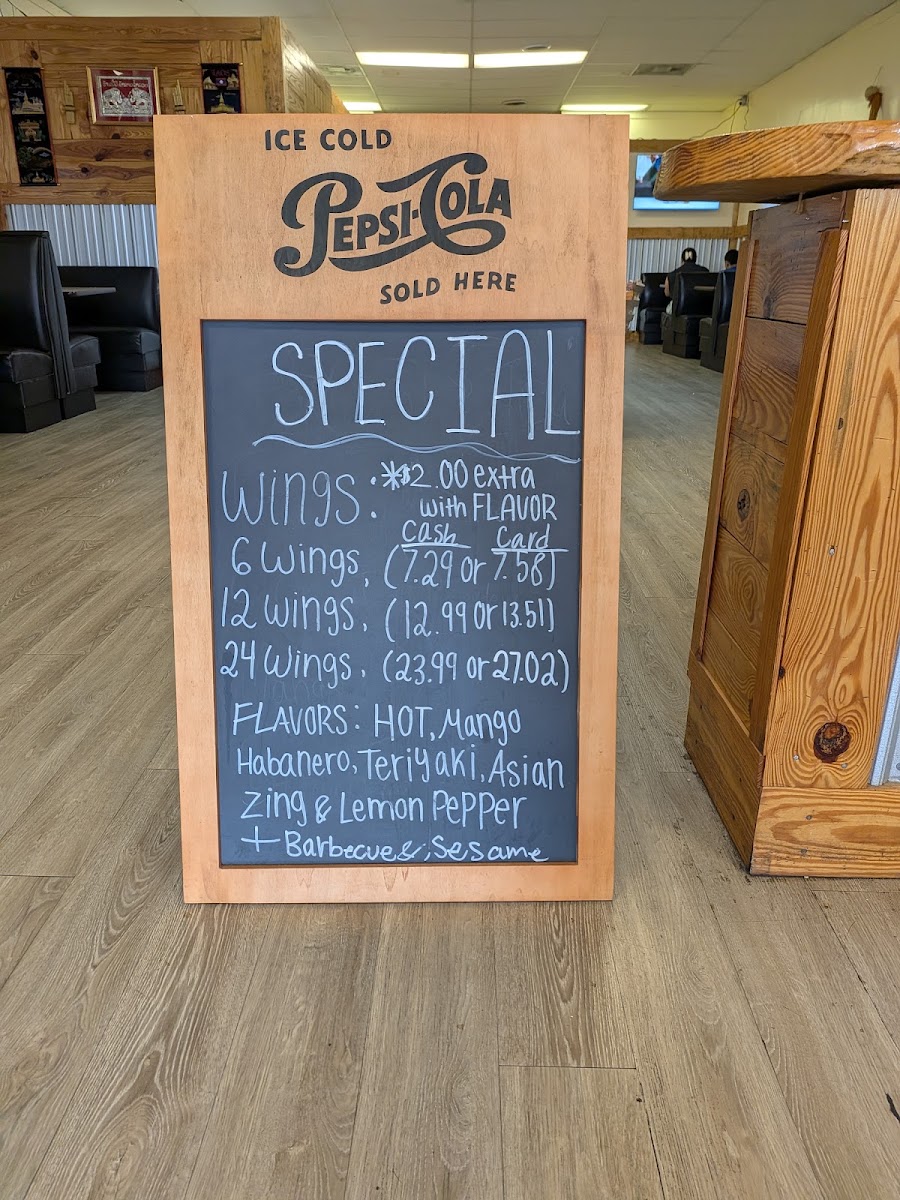 ICE COLD
PEPSI-COLA
SOLD HERE
SPECIAL
Wings. *$2.00 extra
with FLAVOR
Cash Card
6 Wings, (7.29 or 7.58)
12 wings, (12.99 or 13.51)
24 Wings, (23.99 or 27.02)
FLAVORS: HOT, Mango
Habanero, Teriyaki, Asian
Zing & Lemon Pepper
+ Barbecue &, Sesame